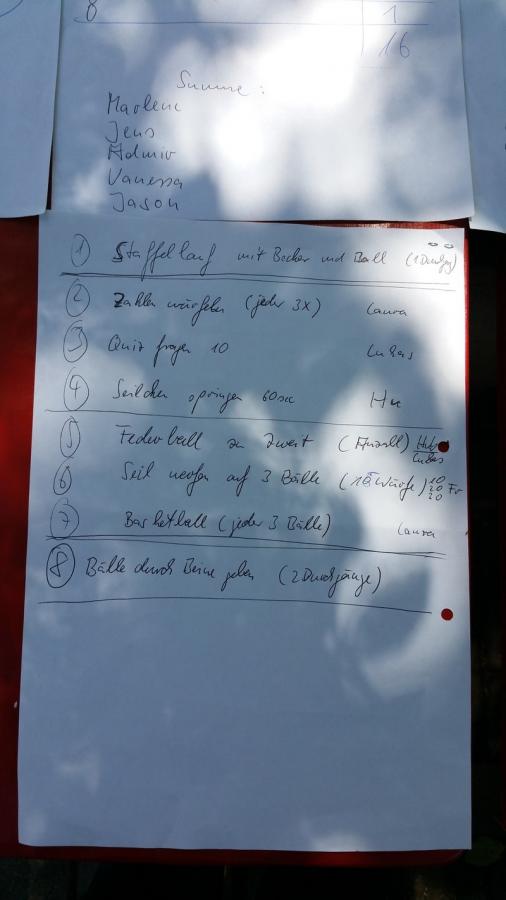 8 1
16
Summe:
Marlene
Jens
Admir
Vanessa
Jason
① Staffellauf mit Becher und Ball (1 Durchg)
② Zahlen würfeln (jeder 3x) Laura
③ Quiz fragen 10 Lukas
④ Seilchen springen 60sec Hu
⑤ Federball zu zweit (Anzahl)
Lukas
⑥ Seil werfen auf 3 Bälle (Würfe) 10
20
20
⑦ Basketball (jeder 3 Bälle) Laura
⑧ Bälle durch Beine geben (2 Durchgänge)